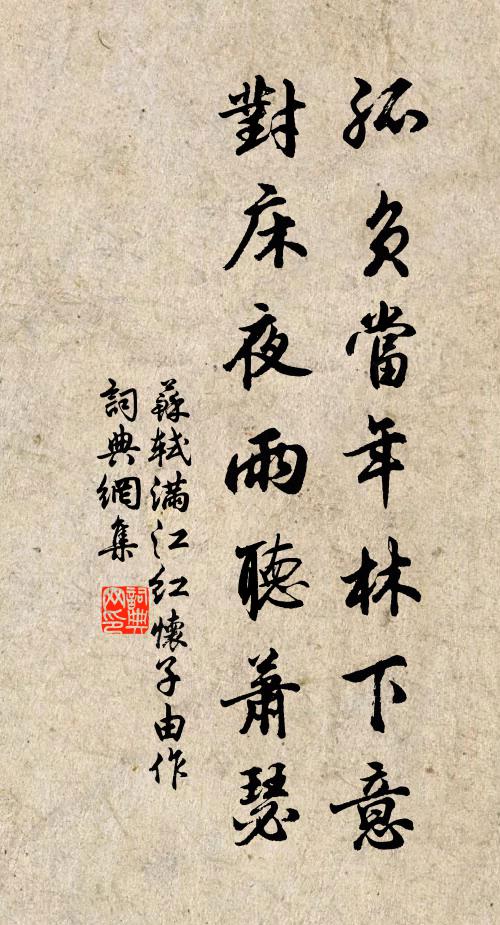 孤負當年林下意
對床夜雨聽蕭瑟
蘇軾滿江红懷子由作
詞典網集
詞典网印